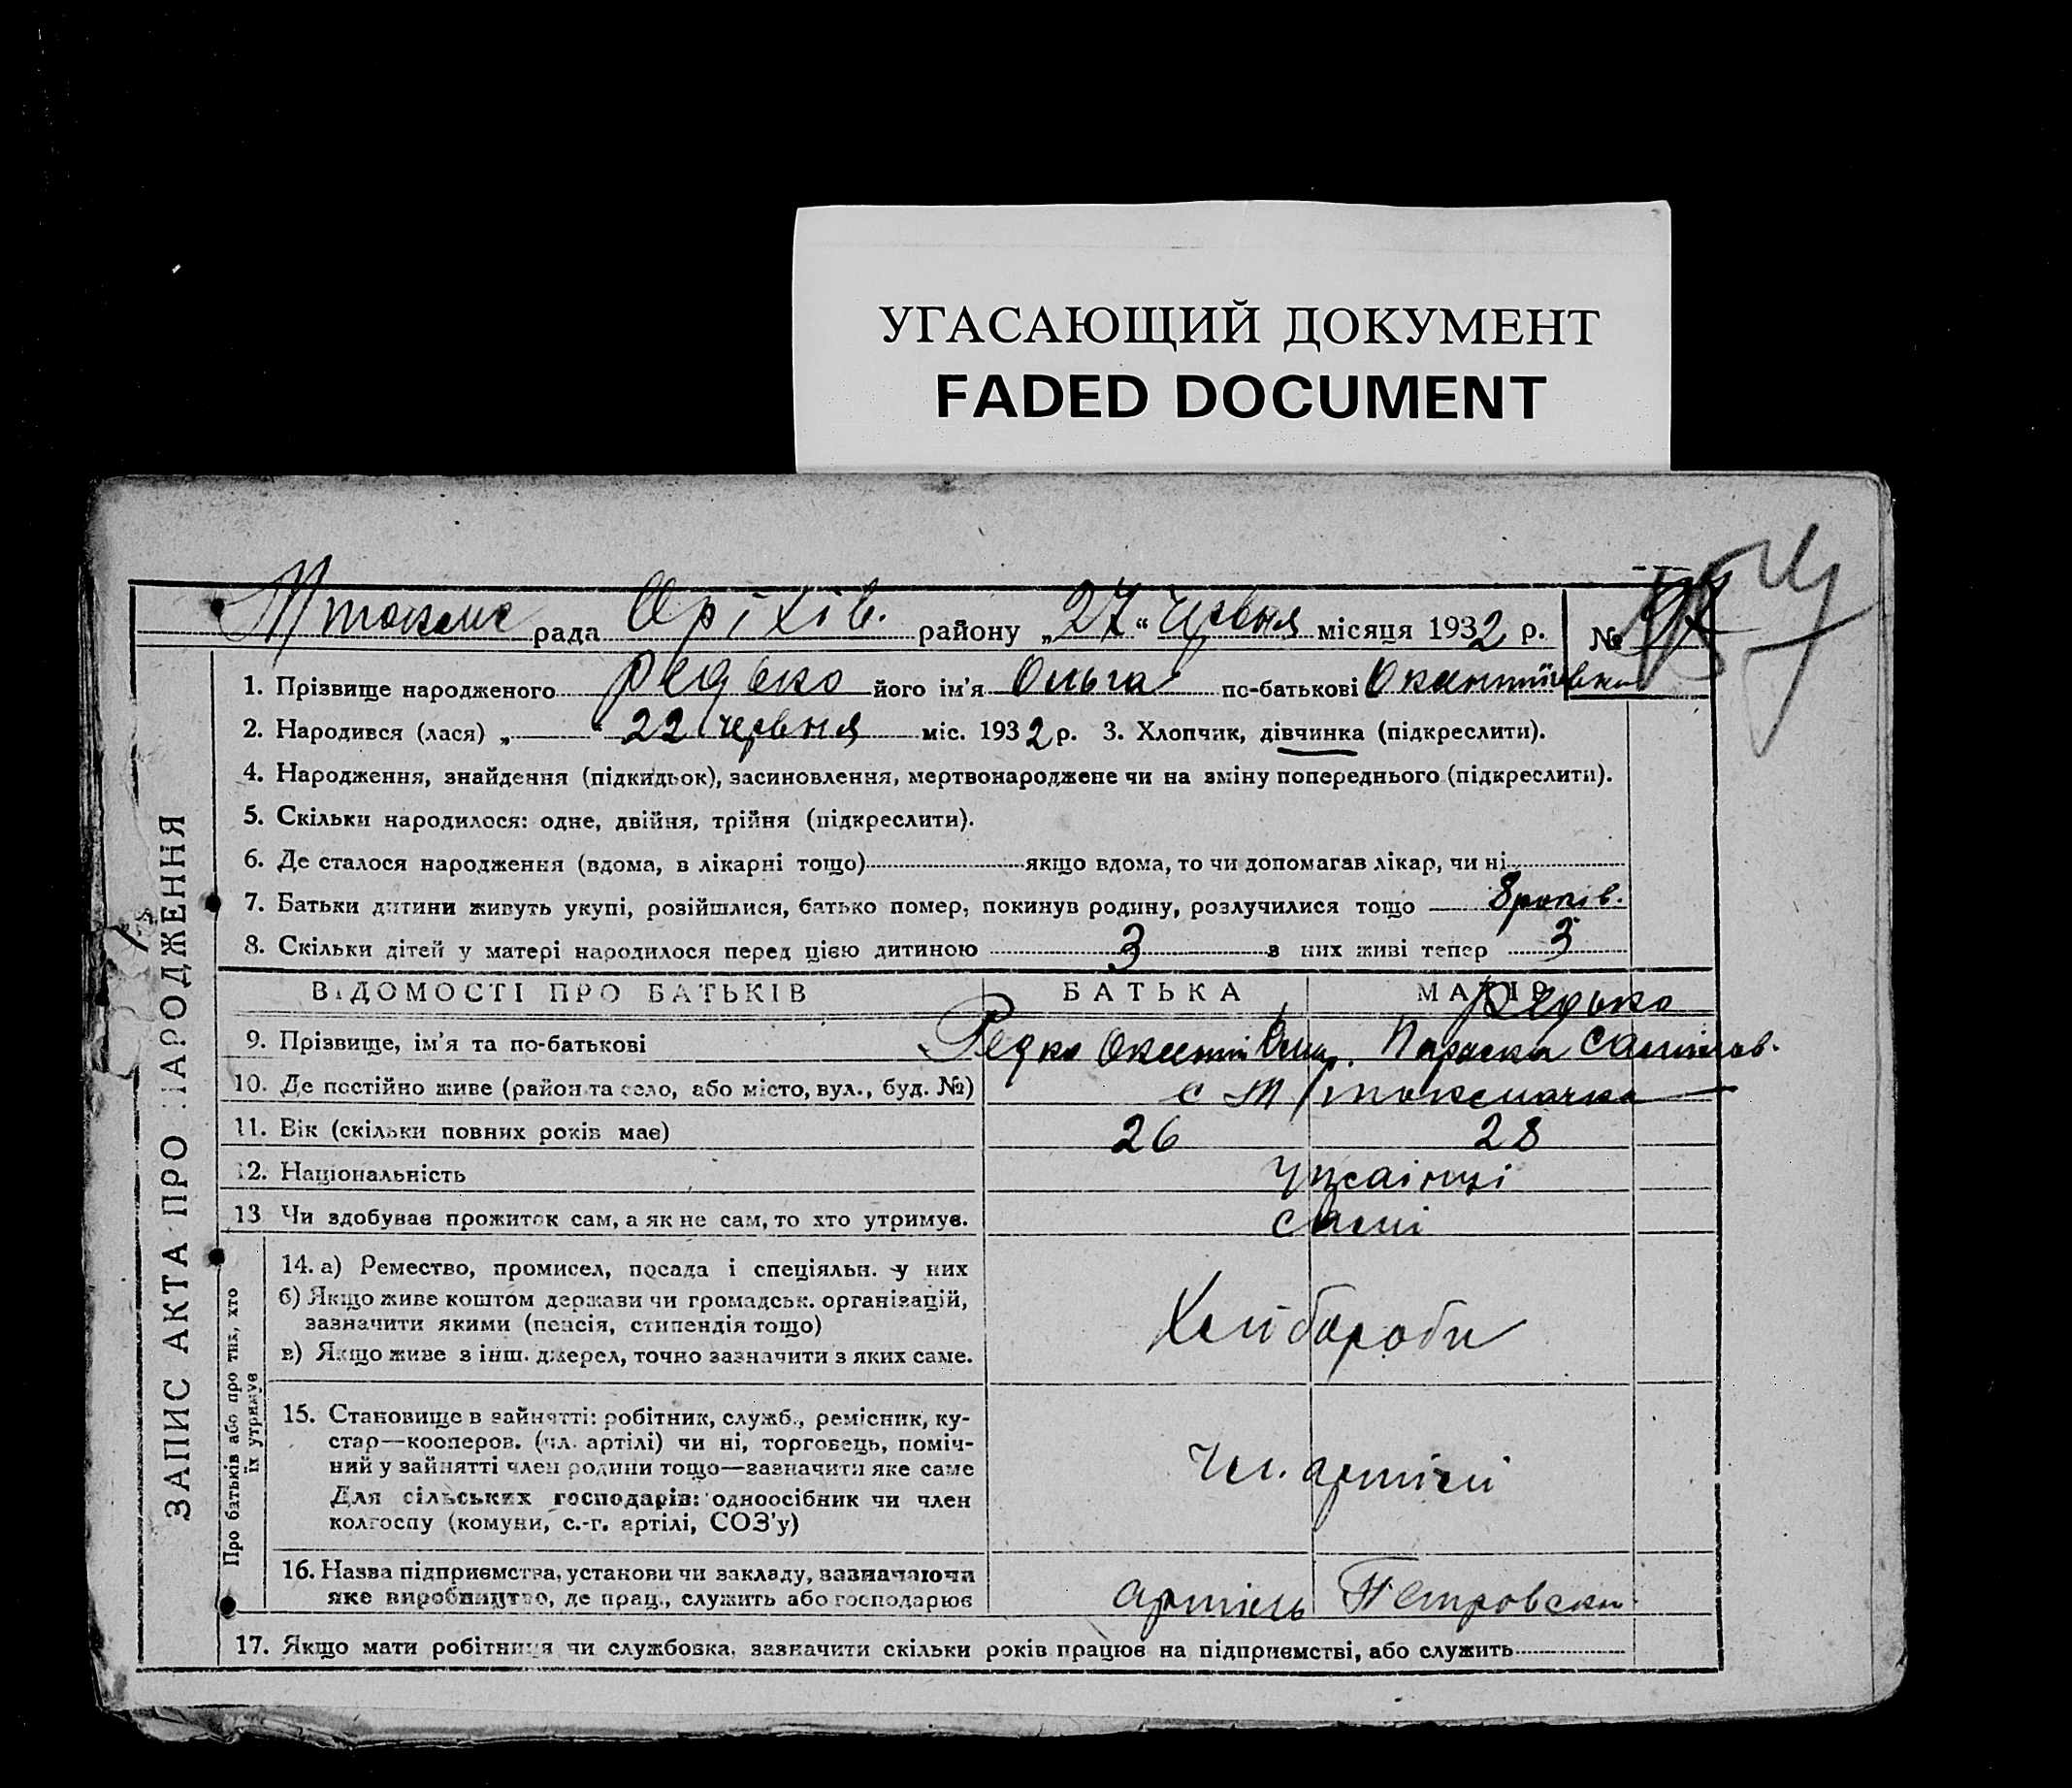 УГАСАЮЩИЙ ДОКУМЕНТ
FADED DOCUMENT
рада Оріхів. району „27“ червня місяця 1932 р. №
1. Прізвище народженого Редько його ім'я Ольга по-батькові
2. Народився (лася) „ “ 22 червня міс. 1932 р. 3. Хлопчик, дівчинка (підкреслити).
4. Народження, знайдення (підкидьок), засиновлення, мертвонароджене чи на зміну попереднього (підкреслити).
5. Скільки народилося: одне, двійня, трійня (підкреслити).
6. Де сталося народження (вдома, в лікарні тощо) якщо вдома, то чи допомагав лікар, чи ні
7. Батьки дитини живуть укупі, розійшлися, батько помер, покинув родину, розлучилися тощо 8 років.
8. Скільки дітей у матері народилося перед цією дитиною 3 з них живі тепер 3
ВІДОМОСТІ ПРО БАТЬКІВ БАТЬКА МАТІР Редько
9. Прізвище, ім'я та по-батькові Редко Параска
10. Де постійно живе (район та село, або місто, вул., буд. №) с М Токмачка
11. Вік (скільки повних років має) 26 28
12. Національність Українці
13 Чи здобував прожиток сам, а як не сам, то хто утримув. самі
14. а) Ремество, промисел, посада і спеціяльн. у них
б) Якщо живе коштом держави чи громадськ. організацій,
зазначити якими (пенсія, стипендія тощо)
в) Якщо живе з інш. джерел, точно зазначити з яких саме.
Хлібороби
15. Становище в зайнятті: робітник, служб., ремісник, ку-
стар—кооперов. (чл. артілі) чи ні, торговець, поміч-
ний у зайнятті член родини тощо—зазначити яке саме
Для сільських господарів: одноосібник чи член
колгоспу (комуни, с.-г. артілі, СОЗ'у)
Чл. артілі
16. Назва підприємства, установи чи закладу, зазначаючи
яке виробництво, де прац., служить або господарює
артіль Петровски
17. Якщо мати робітниця чи службовка, зазначити скільки років працює на підприємстві, або служить
ЗАПИС АКТА ПРО НАРОДЖЕННЯ
Про батьків або про тих, хто
їх утримує